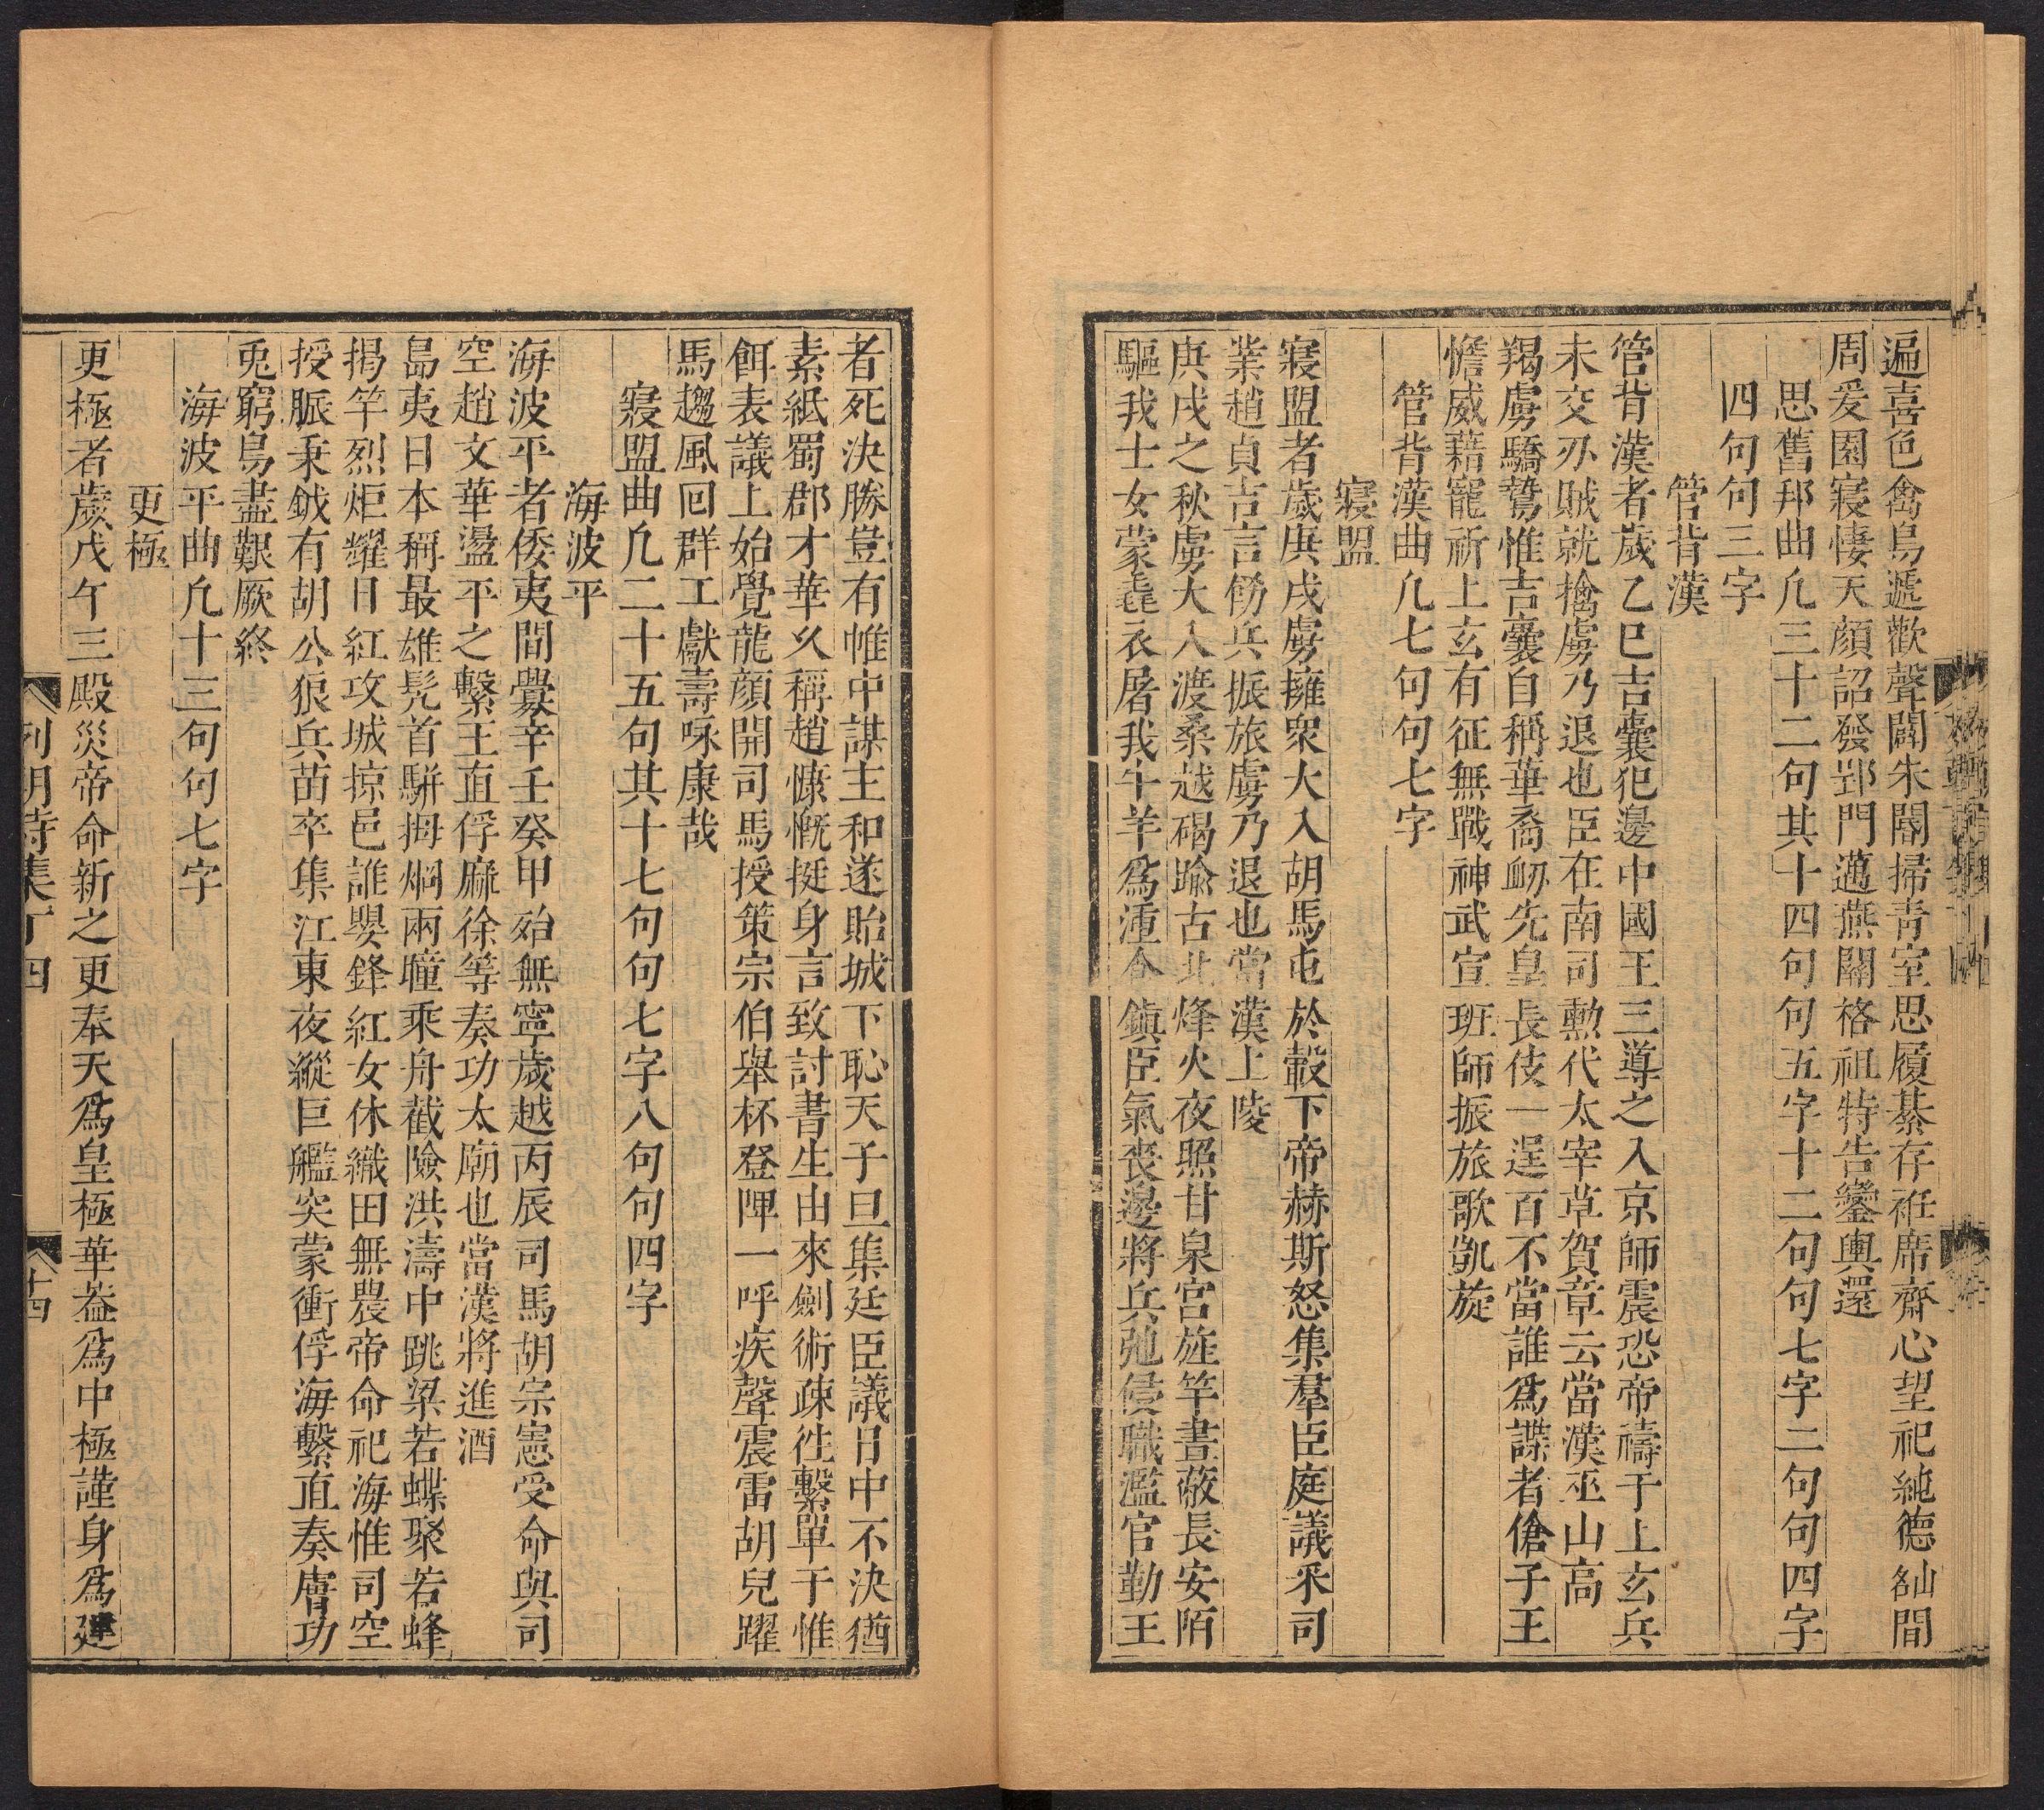 遍喜色禽鳥遞歡聲闢朱閣掃靑室思履綦存袵席齋心望祀純德山間
周爰園寢悽天顏詔發郢門邁燕關格祖特告鑾輿還
思舊邦曲凢三十二句其十四句句五字十二句句七字二句句四字
四句句三字
管背漢
管背漢者歲乙巳吉囊犯邊中國王三導之入京師震恐帝禱于上玄兵
未交刅賊就擒虜乃退也臣在南司勲代太宰草賀章云當漢巫山高
羯虜驕驁惟吉囊自稱華裔衂先皇長伎一逞百不當誰爲諜者傖子王
憺威藉寵祈上玄有征無戰神武宣班師振旅歌凱旋
管背漢曲凢七句句七字
寢盟
寢盟者歲庚戌虜擁衆大入胡馬屯於轂下帝赫斯怒集羣臣庭議釆司
業趙貞吉言餝兵振旅虜乃退也當漢上陵
庚戌之秋虜大入渡桑越碣踰古北烽火夜照甘泉宮旌竿晝蔽長安陌
驅我士女蒙毳衣屠我牛羊爲湩食鎭臣氣喪邊將兵弛侵職濫官勤王
者死決勝豈有帷中謀主和遂貽城下恥天子旦集廷臣議日中不決猶
素紙蜀郡才華久稱趙慷慨挺身言致討書生由來劍術疎徃繫單于惟
餌表議上始覺龍顏開司馬授策宗伯舉杯登陴一呼疾聲震雷胡兒躍
馬趨風囘群工獻壽咏康哉
寢盟曲凢二十五句其十七句句七字八句句四字
海波平
海波平者倭夷間釁辛壬癸甲殆無寧歲越丙辰司馬胡宗憲受命與司
空趙文華盪平之繫王直俘麻徐等奏功太廟也當漢將進酒
島夷日本稱最雄髠首駢拇烱兩瞳乘舟截險洪濤中跳梁若蝶聚若蜂
揭竿烈炬耀日紅攻城掠邑誰嬰鋒紅女休織田無農帝命祀海惟司空
授脈秉鉞有胡公狼兵苗卒集江東夜縱巨艦突蒙衝俘海繫直奏膚功
兎窮鳥盡艱厥終
海波平曲凢十三句句七字
更極
更極者歲戊午三殿災帝命新之更奉天爲皇極華葢爲中極謹身爲建
列朝詩集丁四
十四